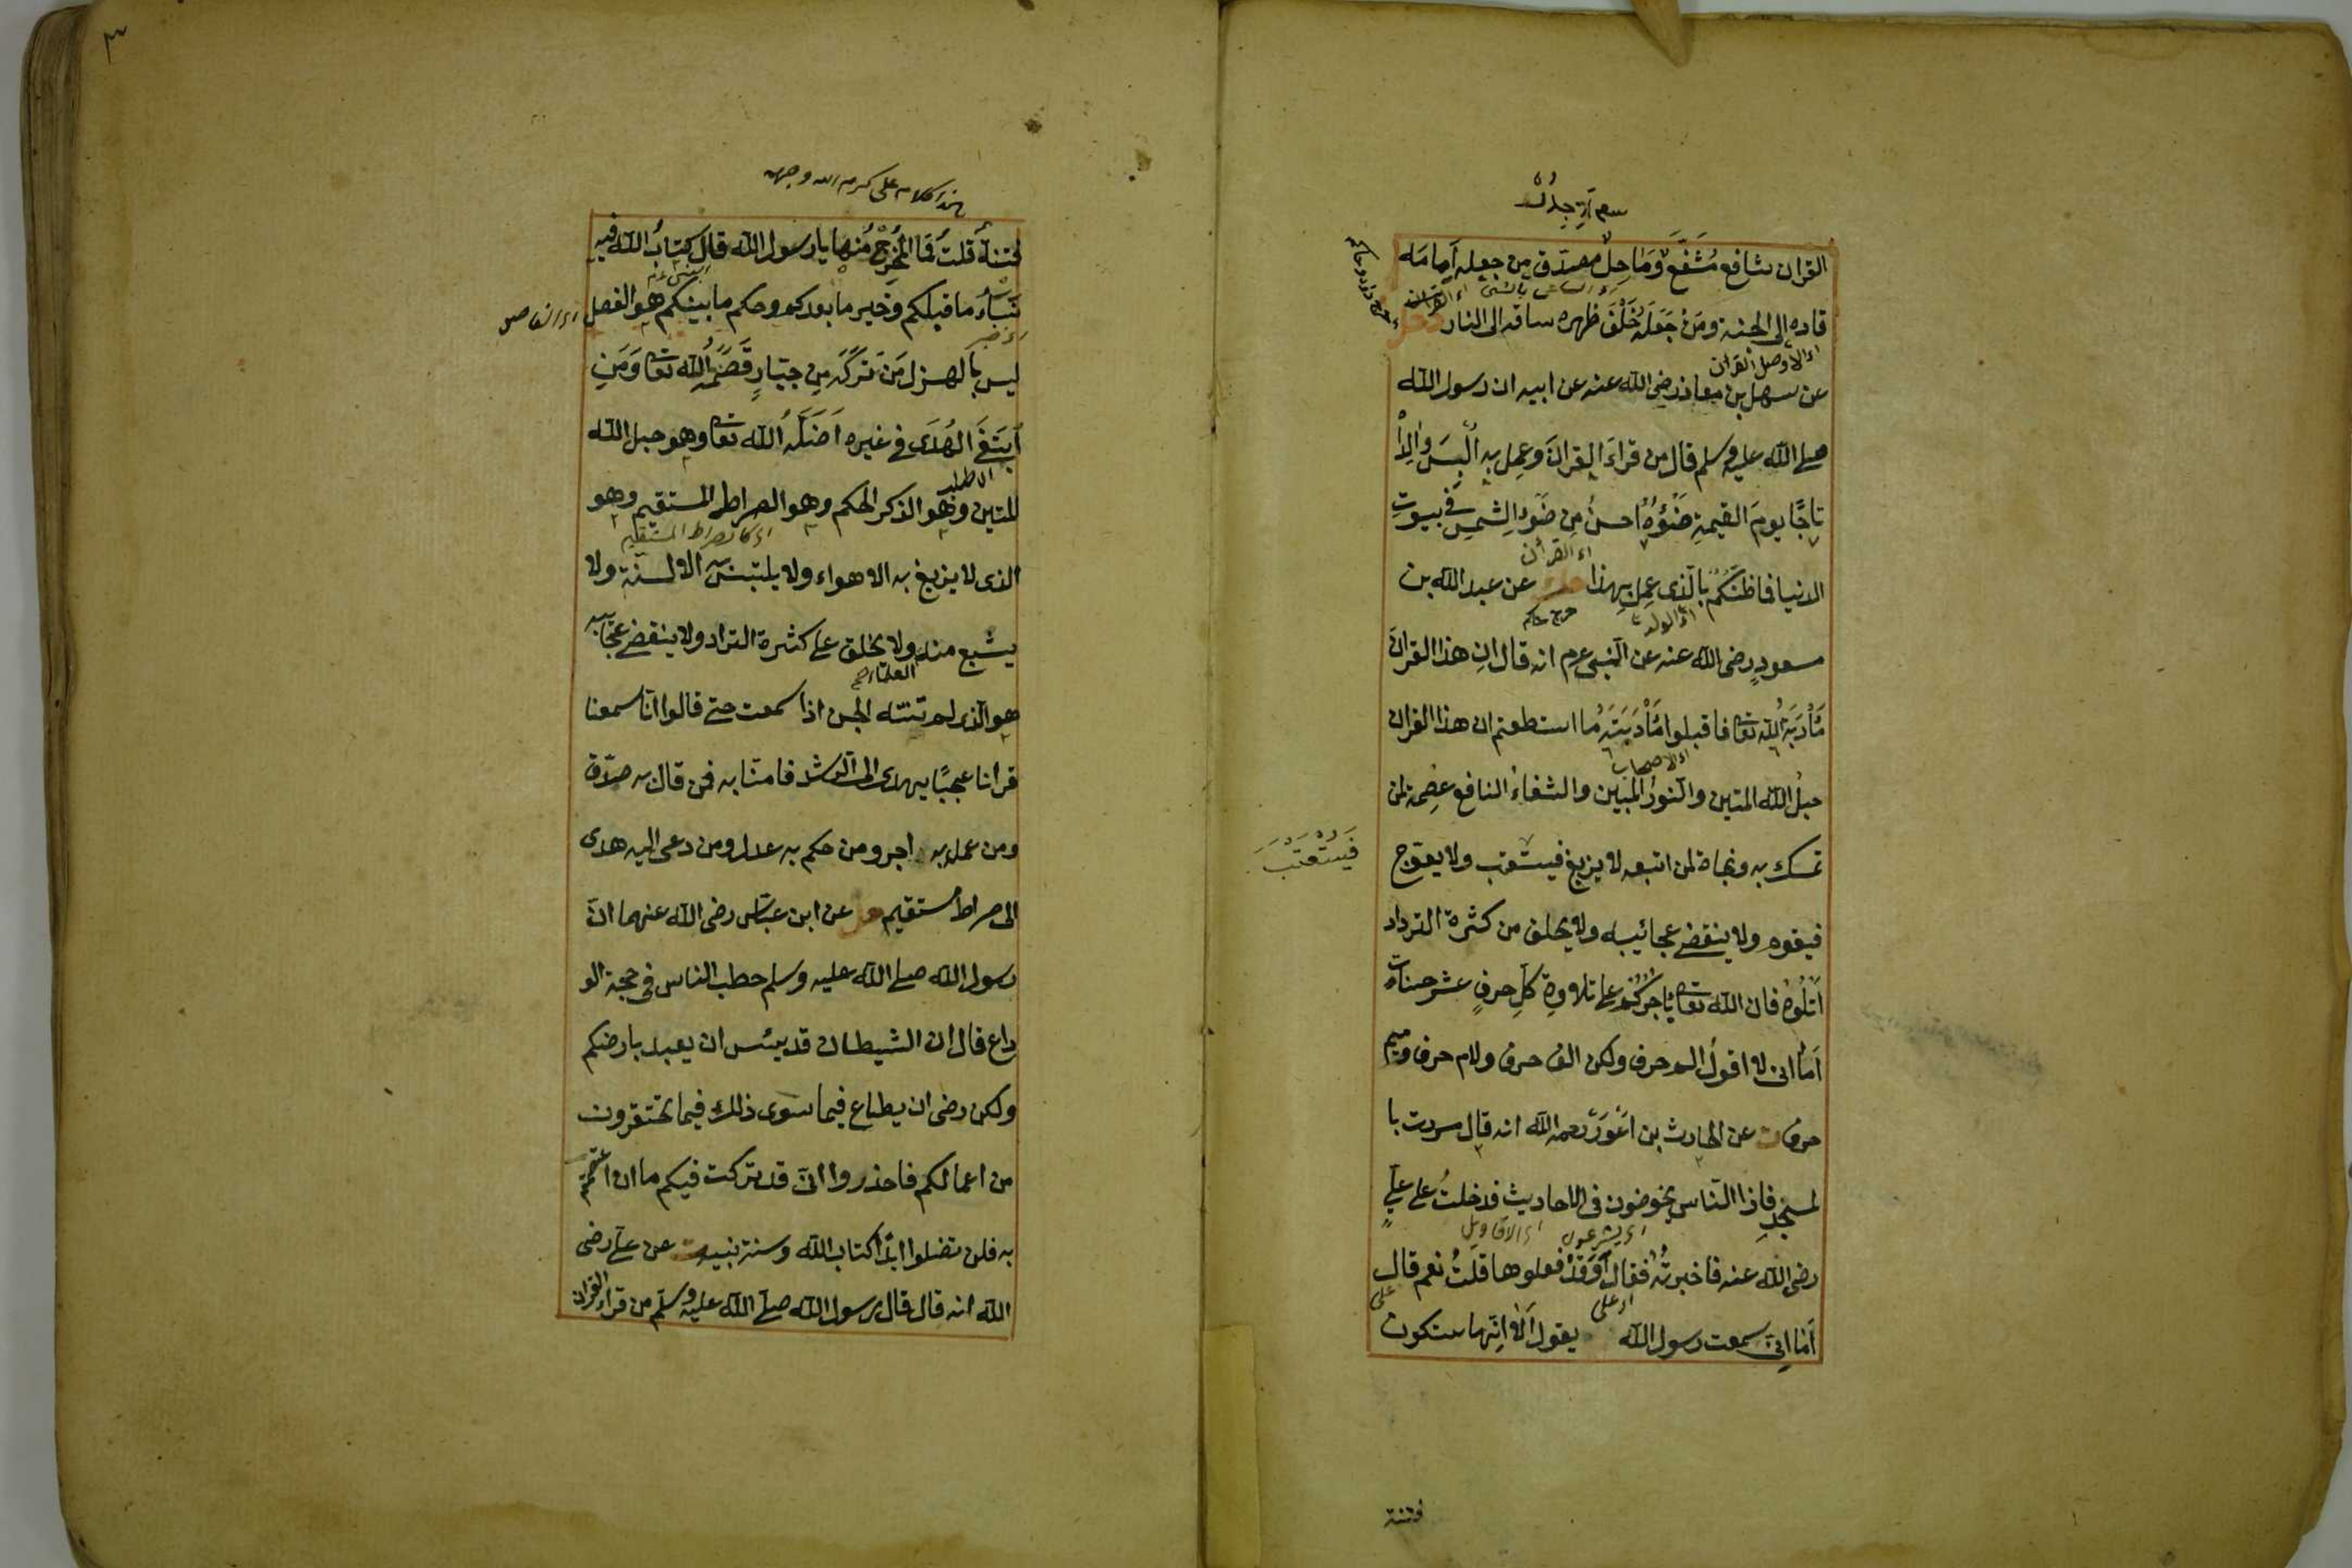 القران شافع مُشَفَّعٌ وَمَاحِلٌ مصدّق من جعله اَمامَه
قاده إلى الجنة ومَن جَعَلَهُ خَلْفَ ظهره ساقه الى النار
اى القران
عن سهل بن معاذ رضي الله عنه عن ابيه ان رسول الله
صلى الله عليه وسلم قال من قراءَ القرانَ وعَمِل به اُلْبِسَ وَالِداهُ
تاجًا يومَ القيمةِ ضَوْؤُهُ احسنُ مِن ضَوءِ الشمسِ في بيوتِ
اى القرأن
الدنيا فما ظنّكُم بالّذى عمِل بهذا عن عبد الله بن
اى الولد
مسعودٍ رضى الله عنه عن النبى عم انه قال ان هذا القرانَ
مَأْدَبَةُ الله تعا فاقبلوا مَأْدَبَتَهُ ما استطعتم ان هذا القران
حبلُ الله المتين والنّورُ المُبين والشفاءُ النافع عِصمة لمن
تمسك به ونجاة لمن اتبعه لا يزيغ فيستعتب ولا يعوّج
فَيُسْتَعْتَبَ
فيقوم ولا ينقضى عجائبه ولا يخلق من كثرة الترداد
اُتْلُوْهُ فان الله تعا يَأْجُرُكُمْ على تلاوةِ كلِّ حرفٍ عشر حسنات
اَما انى لا اقولُ الم حرف ولكن الف حرف ولام حرف وميم
حرف عن الحارث بن اَعْوَرَ رحمه الله انه قال مررت با
لمسجدِ فاذا النّاس يخوضون فى الاحاديث فدخلتُ على عليٍّ
اى يشرعون اى الاقاويل
رضى الله عنه فاخبرتُه فقال اَوَقَدْ فعلوها قلتُ نعم قال
اى على
اَما اِنّى سمعت رسول الله يقول اَلَا اِنّها ستكون
فتنة
هذا كلام على كرم الله وجهه
فتنةٌ قلتُ فَمَا المَخْرَجُ مِنها يا رسول الله قال كتابُ الله فيه
نَبَأُ ما قبلكم وخبر ما بعدكم وحكم ما بينكم هو الفصل
ليس بالهزل مَنْ تَرَكَه مِن جبّارٍ قَصَمَهُ الله تعا وَمَنِ
اِبْتَغَى الهُدَى في غيره اَضَلَّهُ الله تعا وهو حبل الله
المتين وهو الذكر الحكم وهو الصراط المستقيم وهو
اى كالصراط المستقيم
الذى لا يزيغ به الاهواء ولا يلتبس به الالسنة ولا
يشبع منه ولا يخلق على كثرة الترداد ولا ينقضى عجائبه
العلماء صح
هو الّذى لم تنته الجن اذا سمعت حتى قالوا انّا سمعنا
قرانا عجبًا يهدى الى الرشد فامنّا به فمن قال به صدّق
ومن عمل به اجر ومن حكم به عدل ومن دعى اليه هدى
الى صراط مستقيم عن ابن عبّاس رضى الله عنهما انّ
رسول الله صلى الله عليه وسلم خطب الناس فى حجة الو
داع فقال ان الشيطان قد يئس ان يعبد بارضكم
ولكن رضى ان يطاع فيما سوى ذلك فيما تحتقرون
من اعمالكم فاحذروا انى قد تركت فيكم ما ان اعتصمتم
به فلن تضلوا ابدًا كتاب الله وسنة نبيه عن على رضى
الله انه قال قال رسول الله صلى الله عليه وسلم من قراء القران